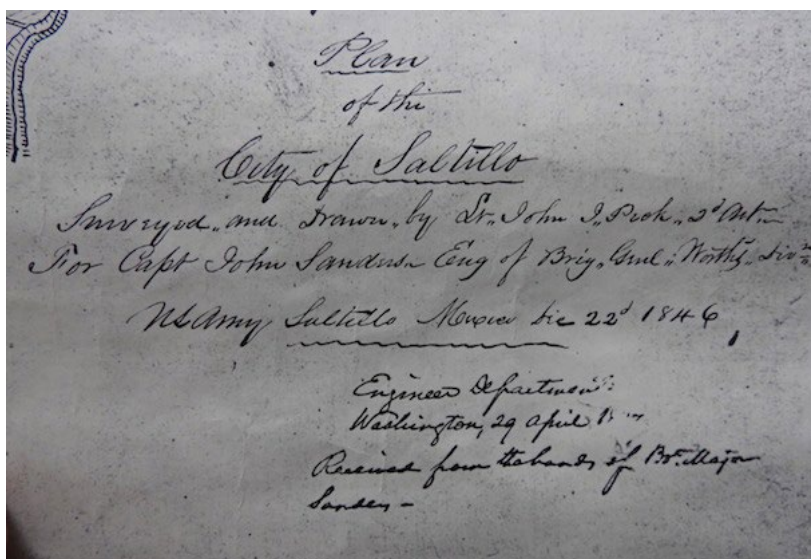 Plan
of the
City of Saltillo
Surveyed and Drawn by Lt. John J. Peck 2d Art.
For Capt John Sanders Eng of Brig. Genl. Worth's Div
US Army Saltillo Mexico Dec 22d 1846
Engineer Department
Washington, 29 April
Received from the hands of Bt. Major
Sanders -